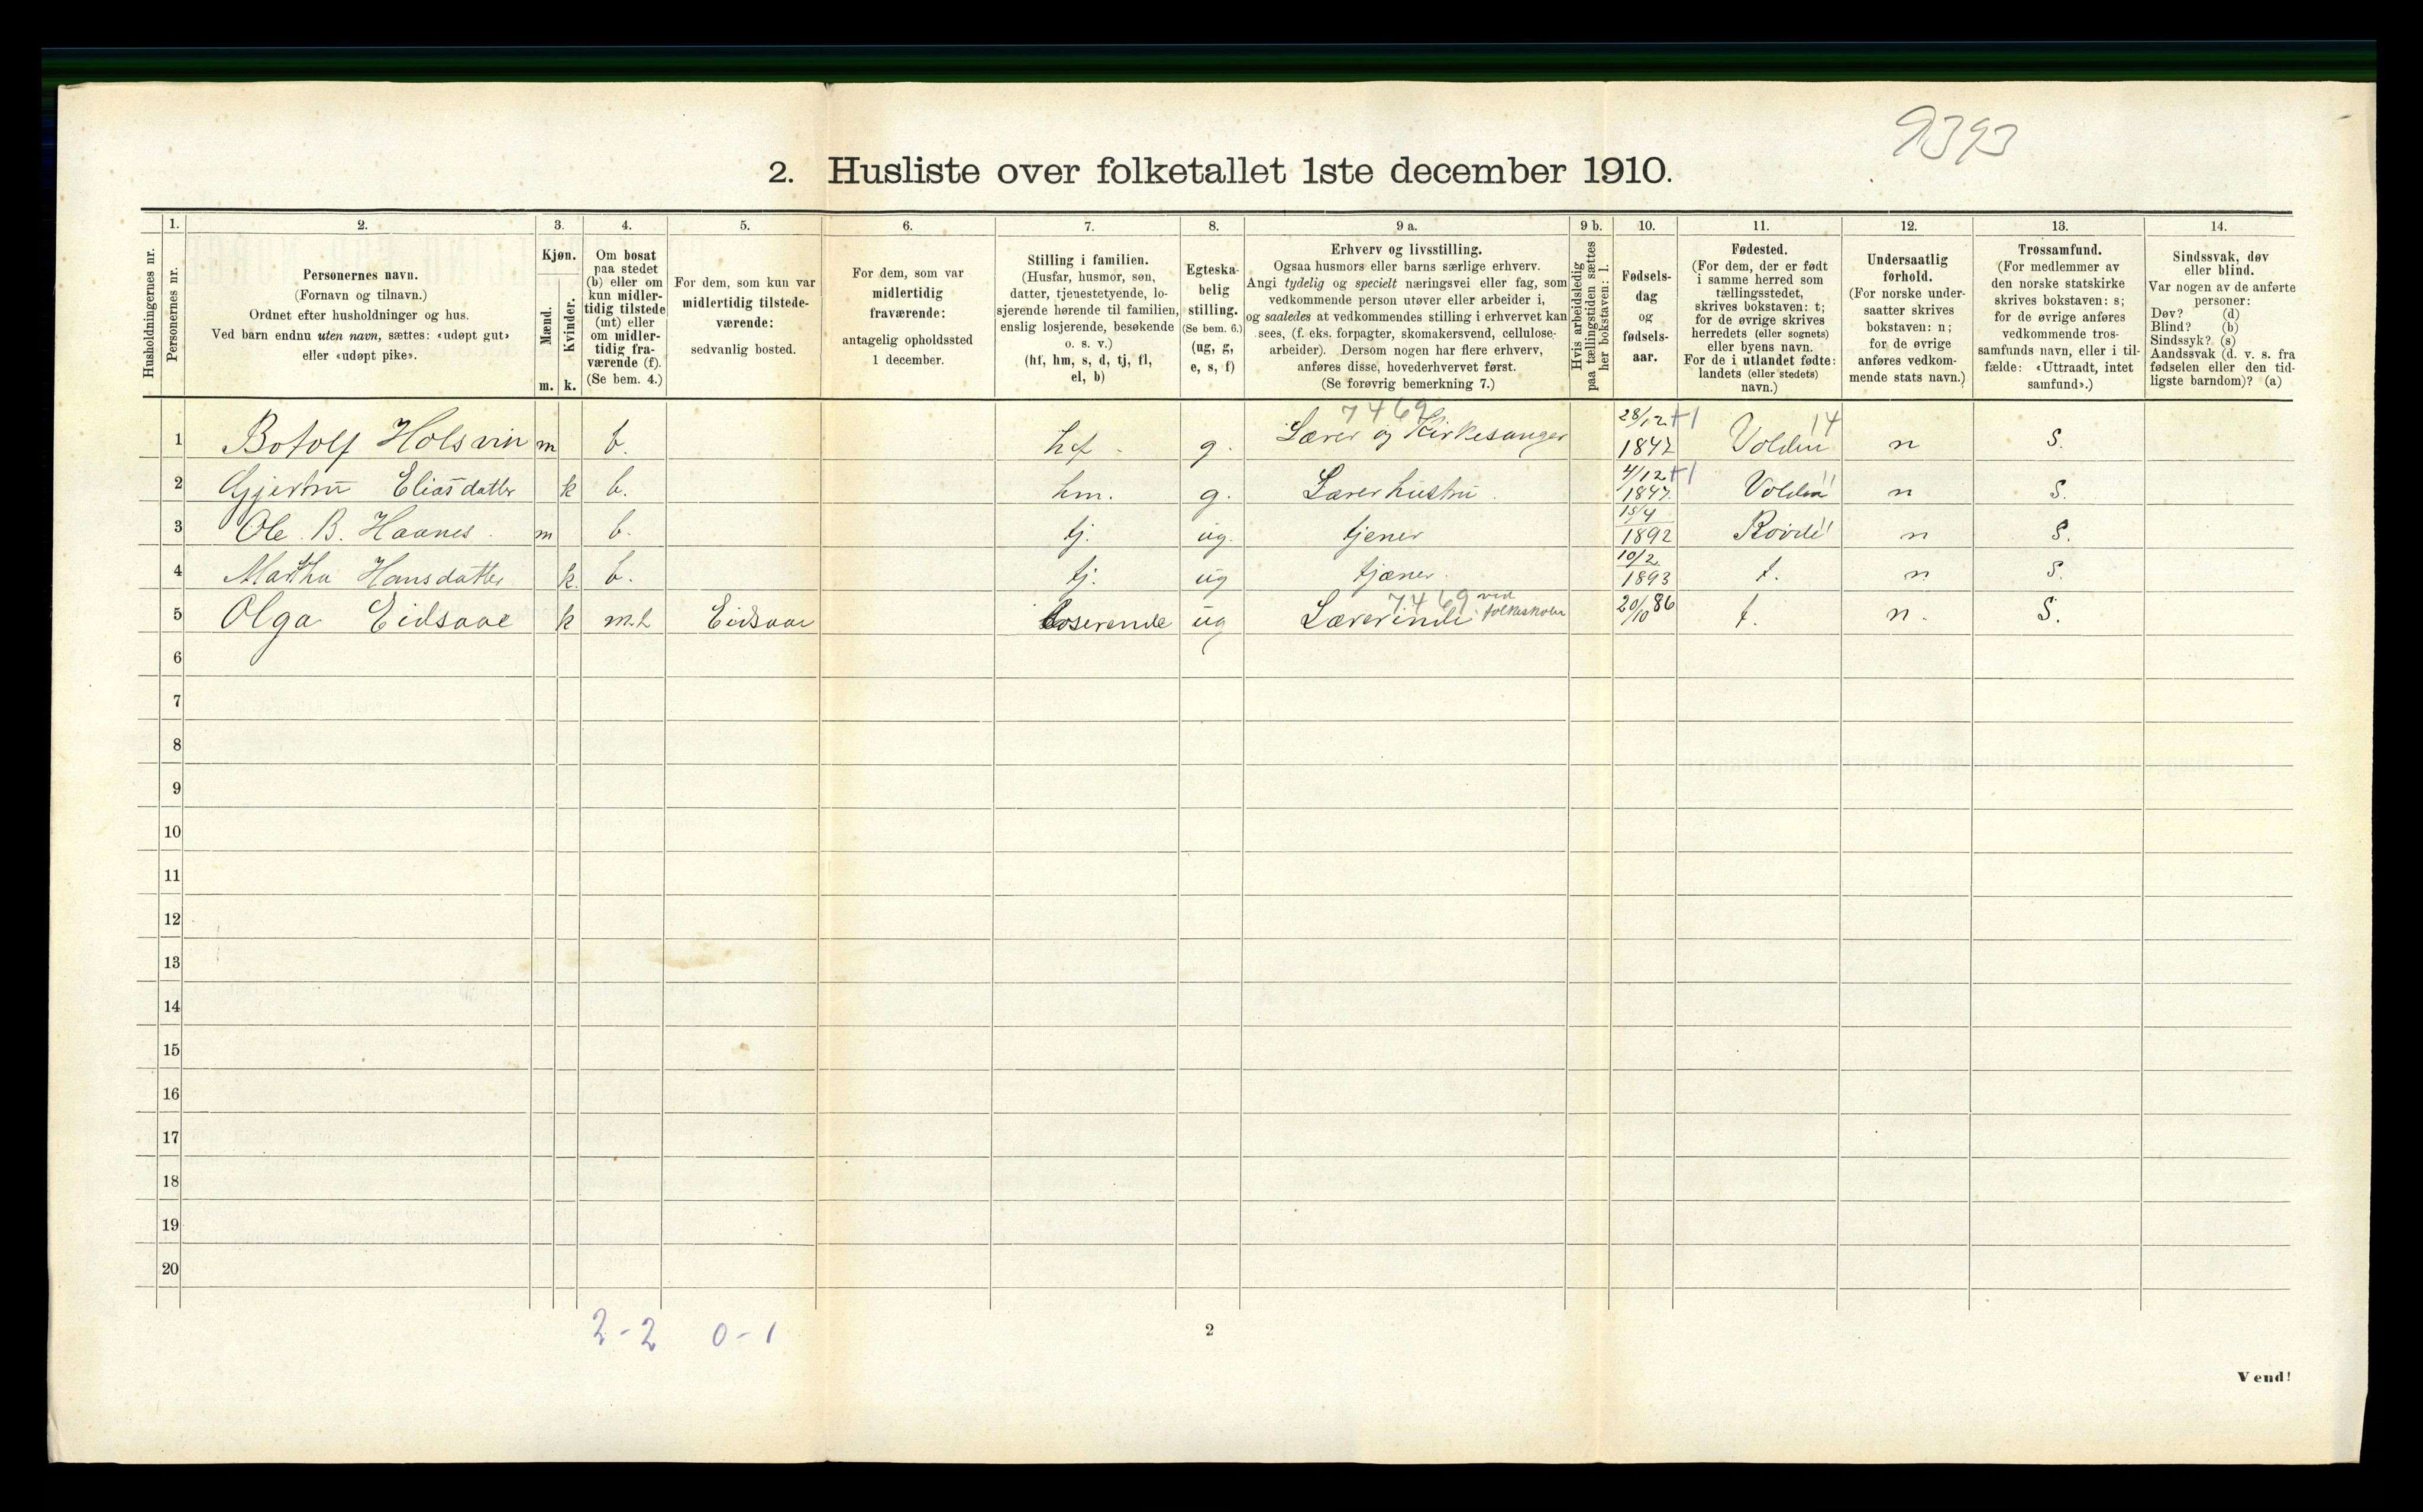 9393
2. Husliste over folketallet 1ste december 1910.
1. 2. 3. 4. 5. 6. 7. 8. 9 a. 9 b. 10. 11. 12. 13. 14.
Husholdningernes nr.
Personernes nr.
Personernes navn.
(Fornavn og tilnavn.)
Ordnet efter husholdninger og hus.
Ved barn endnu uten navn, sættes: «udøpt gut»
eller «udøpt pike».
Kjøn.
Mænd.
Kvinder.
m. k.
Om bosat
paa stedet
(b) eller om
kun midler-
tidig tilstede
(mt) eller
om midler-
tidig fra-
værende (f).
(Se bem. 4.)
For dem, som kun var
midlertidig tilstede-
værende:
sedvanlig bosted.
For dem, som var
midlertidig
fraværende:
antagelig opholdssted
1 december.
Stilling i familien.
(Husfar, husmor, søn,
datter, tjenestetyende, lo-
sjerende hørende til familien,
enslig losjerende, besøkende
o. s. v.)
(hf, hm, s, d, tj, fl,
el, b)
Egteska-
belig
stilling.
(Se bem. 6.)
(ug, g,
e, s, f)
Erhverv og livsstilling.
Ogsaa husmors eller barns særlige erhverv.
Angi tydelig og specielt næringsvei eller fag, som
vedkommende person utøver eller arbeider i,
og saaledes at vedkommendes stilling i erhvervet kan
sees, (f. eks. forpagter, skomakersvend, cellulose-
arbeider). Dersom nogen har flere erhverv,
anføres disse, hovederhvervet først.
(Se forøvrig bemerkning 7.)
Hvis arbeidsledig
paa tællingstiden sættes
her bokstaven: l.
Fødsels-
dag
og
fødsels-
aar.
Fødested.
(For dem, der er født
i samme herred som
tællingsstedet,
skrives bokstaven: t;
for de øvrige skrives
herredets (eller sognets)
eller byens navn.
For de i utlandet fødte:
landets (eller stedets)
navn.)
Undersaatlig
forhold.
(For norske under-
saatter skrives
bokstaven: n;
for de øvrige
anføres vedkom-
mende stats navn.)
Trossamfund.
(For medlemmer av
den norske statskirke
skrives bokstaven: s;
for de øvrige anføres
vedkommende tros-
samfunds navn, eller i til-
fælde: «Uttraadt, intet
samfund».)
Sindssvak, døv
eller blind.
Var nogen av de anførte
personer:
Døv? (d)
Blind? (b)
Sindssyk? (s)
Aandssvak (d. v. s. fra
fødselen eller den tid-
ligste barndom)? (a)
7469
1 Botolf Holsvin m b. hf - g. Lærer og Kirkesanger 28/12 1842 Volden 14 n S.
2 Gjertru Eliasdatter k b. hm. g. Lærerhustru. 4/12 1847 Volden 11 n S.
3 Ole B. Haanes. m b. tj. ug. tjener 15/4 1892 Rovde 11 n S.
4 Martha Hansdatter k. b. tj. ug tjæner. 10/2 1893 t. n S.
7469
5 Olga Eidsaae k mt Eidsaae loserende ug Lærerinde ved folkeskolen 20/10 86 t. n. S.
6
7
8
9
10
11
12
13
14
15
16
17
18
19
20
2-2 0-1
2
Vend!